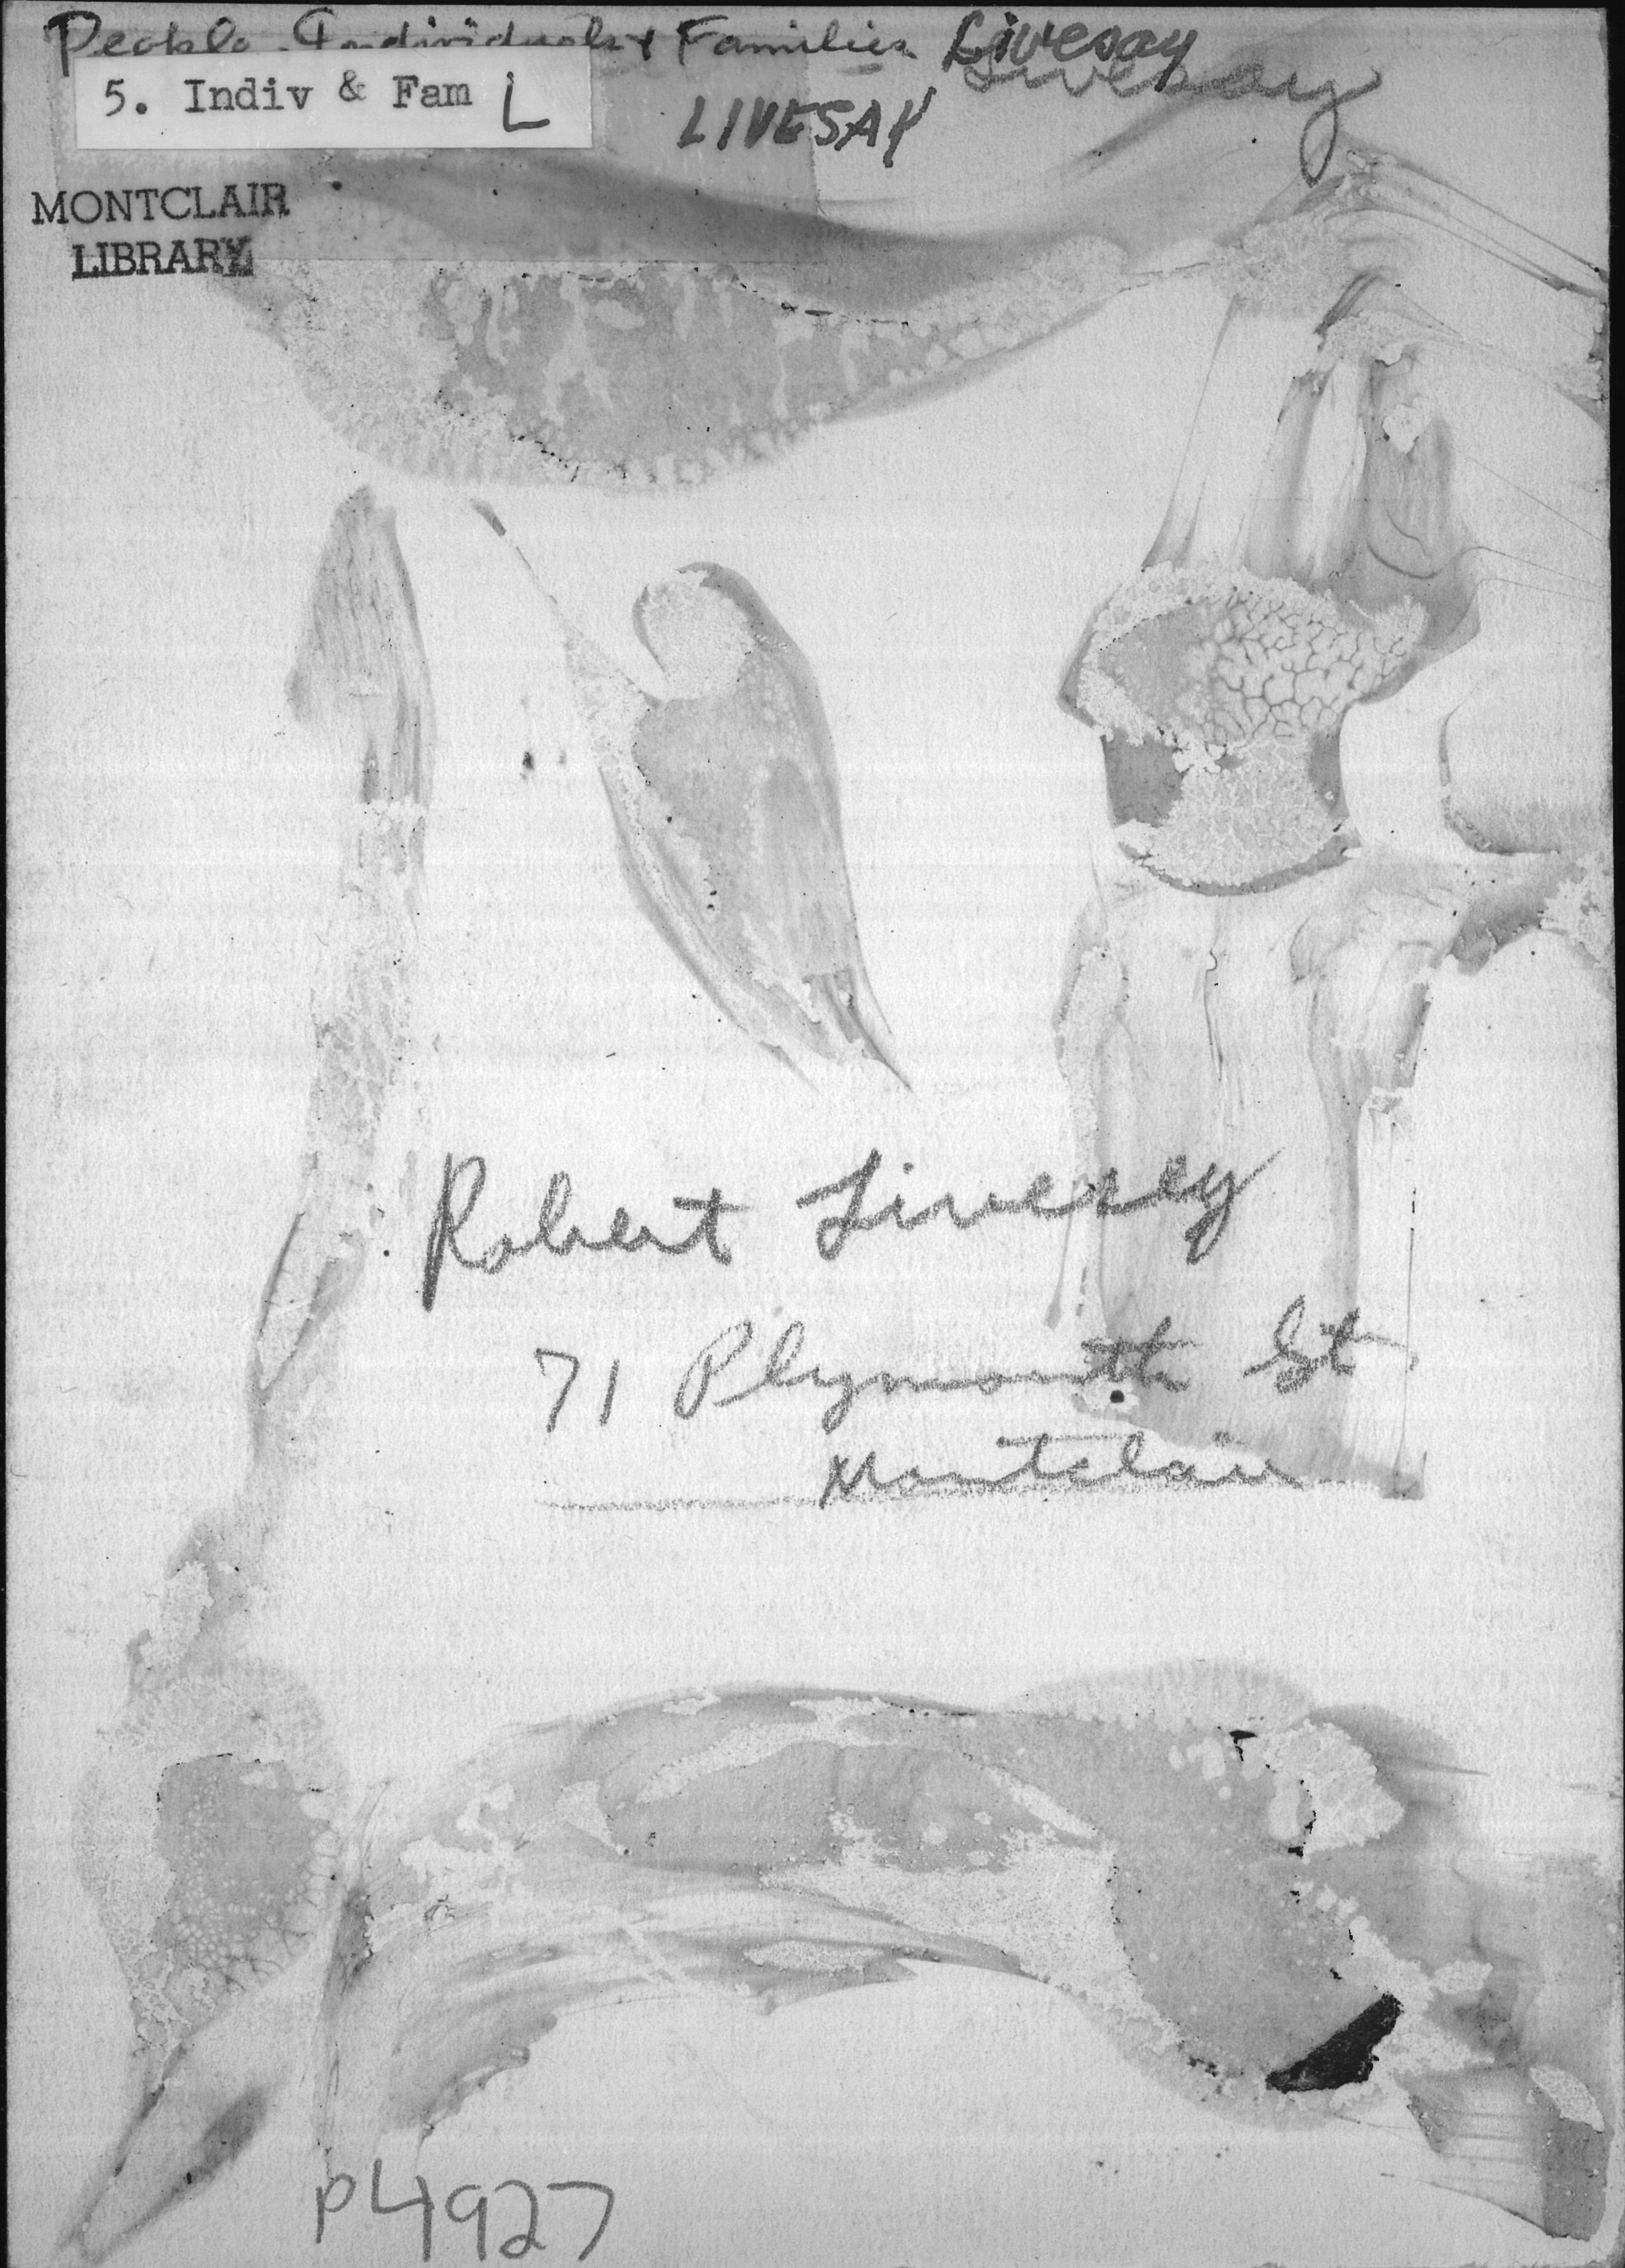 People - Individuals & Families Livesay
Livesay
5. Indiv & Fam L
LIVESAY
MONTCLAIR
LIBRARY
Robert Livesey
71 Plymouth St
Montclair
P4927